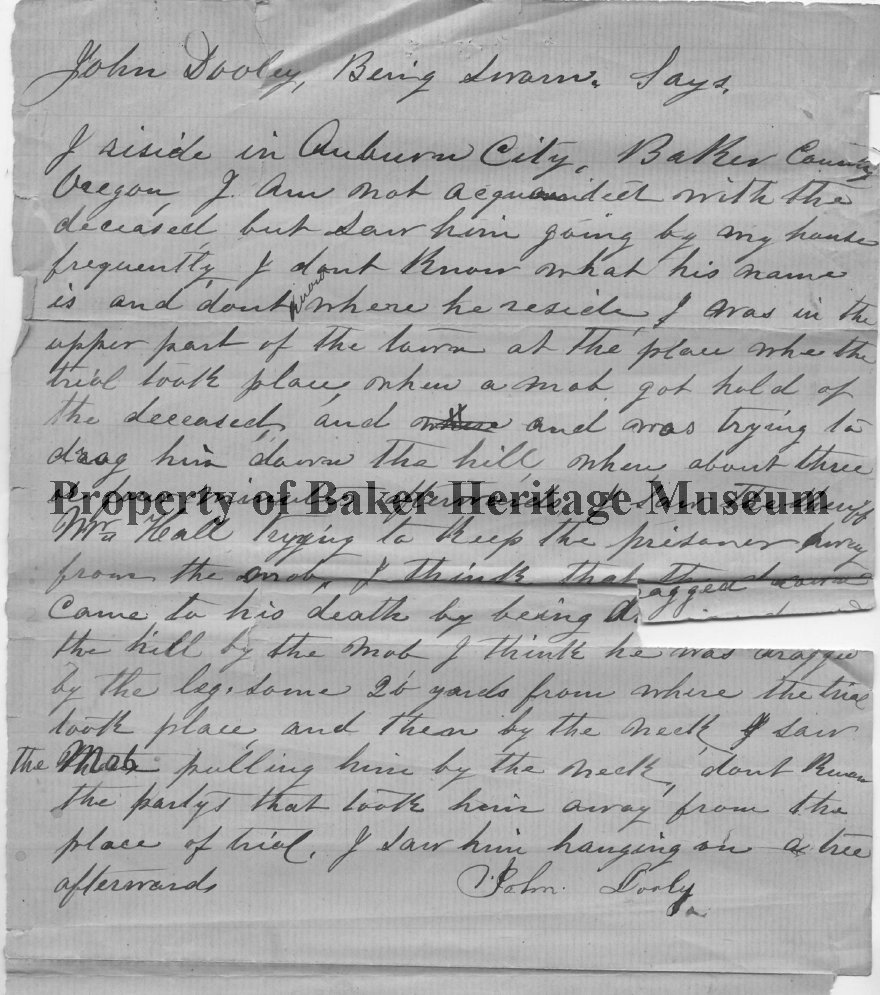 John Dooley, Being Sworn. Says.
I riside in Auburn City, Baker County
Oregon, I am not acquainted with the
deceased, but saw him going by my house
frequently, I dont know what his name
is and dont know where he reside, I was in the
upper part of the town at the place whe the
trial took place, when a mob got hold of
the deceased, and and was trying to
drag him down the hill, when about three
minutes afterwards I saw
Property of Baker Heritage Museum
Hall trying to keep the prisoner away
from the mob, I think that
came to his death by being dragged down
the hill by the mob I think he was dragged
by the leg. some 20 yards from where the trial
took place, and then by the neck I saw
the Mob pulling him by the neck, dont know
the partys that took him away from the
place of trial, I saw him hanging on a tree
afterwards John Dooly